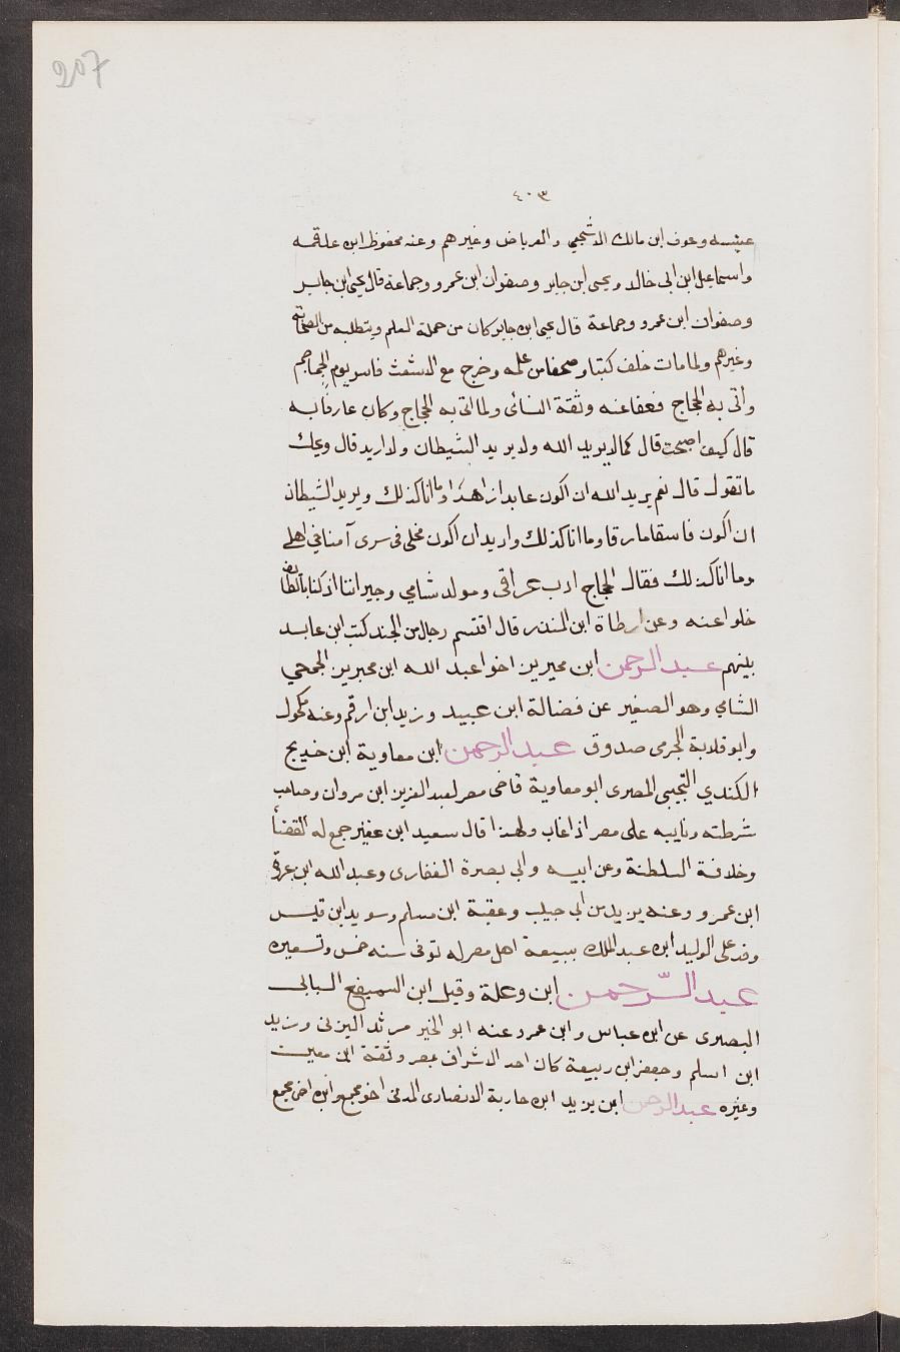 207
٤٠٣
عبسه وعوف ابن مالك الاشجعي والعرباض وغيرهم وعنه محفوظ ابن علقمه
واسماعيل ابن ابى خالد ويحيى ابن جابر وصفوان ابن عمرو وجماعة قال يحيى ابن جابر
وصفوان ابن عمرو وجماعة قال يحيى ابن جابر كان من حملة العلم ويتطلبه من الصحابة
وغيرهم ولما مات خلف كتبا وصحفا من علمه وخرج مع الاشعث فاسر يوم الجماجم
وأتى به الحجاج فعفا عنه وثقة النسائى ولما اتى به الحجاج وكان عارفا به
قال كيف اصبحت قال كما لا يريد الله ولا يريد الشيطان ولا اريد قال ويحك
ما تقول قال نعم يريد الله ان اكون عابدا زاهدا وما انا كذلك ويريد الشيطان
ان اكون فاسقا مارقا وما انا كذلك واريد ان اكون مخلى فى سربى آمنا في اهلى
وما انا كذلك فقال الحجاج ادب عراقى ومولد شامي وجيراننا اذ كنا بالطائف
خلوا عنه وعن ارطاة ابن المنذر قال اقتسم رجال من الجند كتب ابن عايد
بينهم عبد الرحمن ابن محيريز اخو عبد الله ابن محيريز الجمحي
الشامي وهو الصغير عن فضالة ابن عبيد وزيد ابن ارقم وعنه مكحول
وابو قلابة الجرمى صدوق عبد الرحمن ابن معاوية ابن خديج
الكندي التجيبى المصرى ابو معاوية قاضى مصر لعبد العزيز ابن مروان وصاحب
شرطته ونايبه على مصر اذا غاب ولهذا قال سعيد ابن عفير جمع له القضا
وخلافة السلطنة وعن ابيه وابى بصرة الغفارى وعبد الله ابن
ابن عمرو وعنه يزيد بن ابي حبيب وعقبة ابن مسلم وسويد ابن قيس
وفد على الوليد ابن عبد الملك ببيعة اهل مصر له توفى سنه خمس وتسعين
عبد الرّحمن ابن وعلة وقيل ابن السميفع السبائى
المصرى عن ابن عباس وابن عمر وعنه ابو الخير مرثد اليزنى وزيد
ابن اسلم وجعفر ابن ربيعة كان احد الاشراف بمصر وثقة ابن معين
وغيره عبد الرحمن ابن يزيد ابن جارية الانصارى المدنى اخو مجمع وابن اخى مجمع